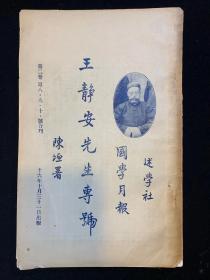 述學社
國學月報
王靜安先生專號
陳垣署
第二卷第八·九·十·號合刊
十六年十月三十一日出版